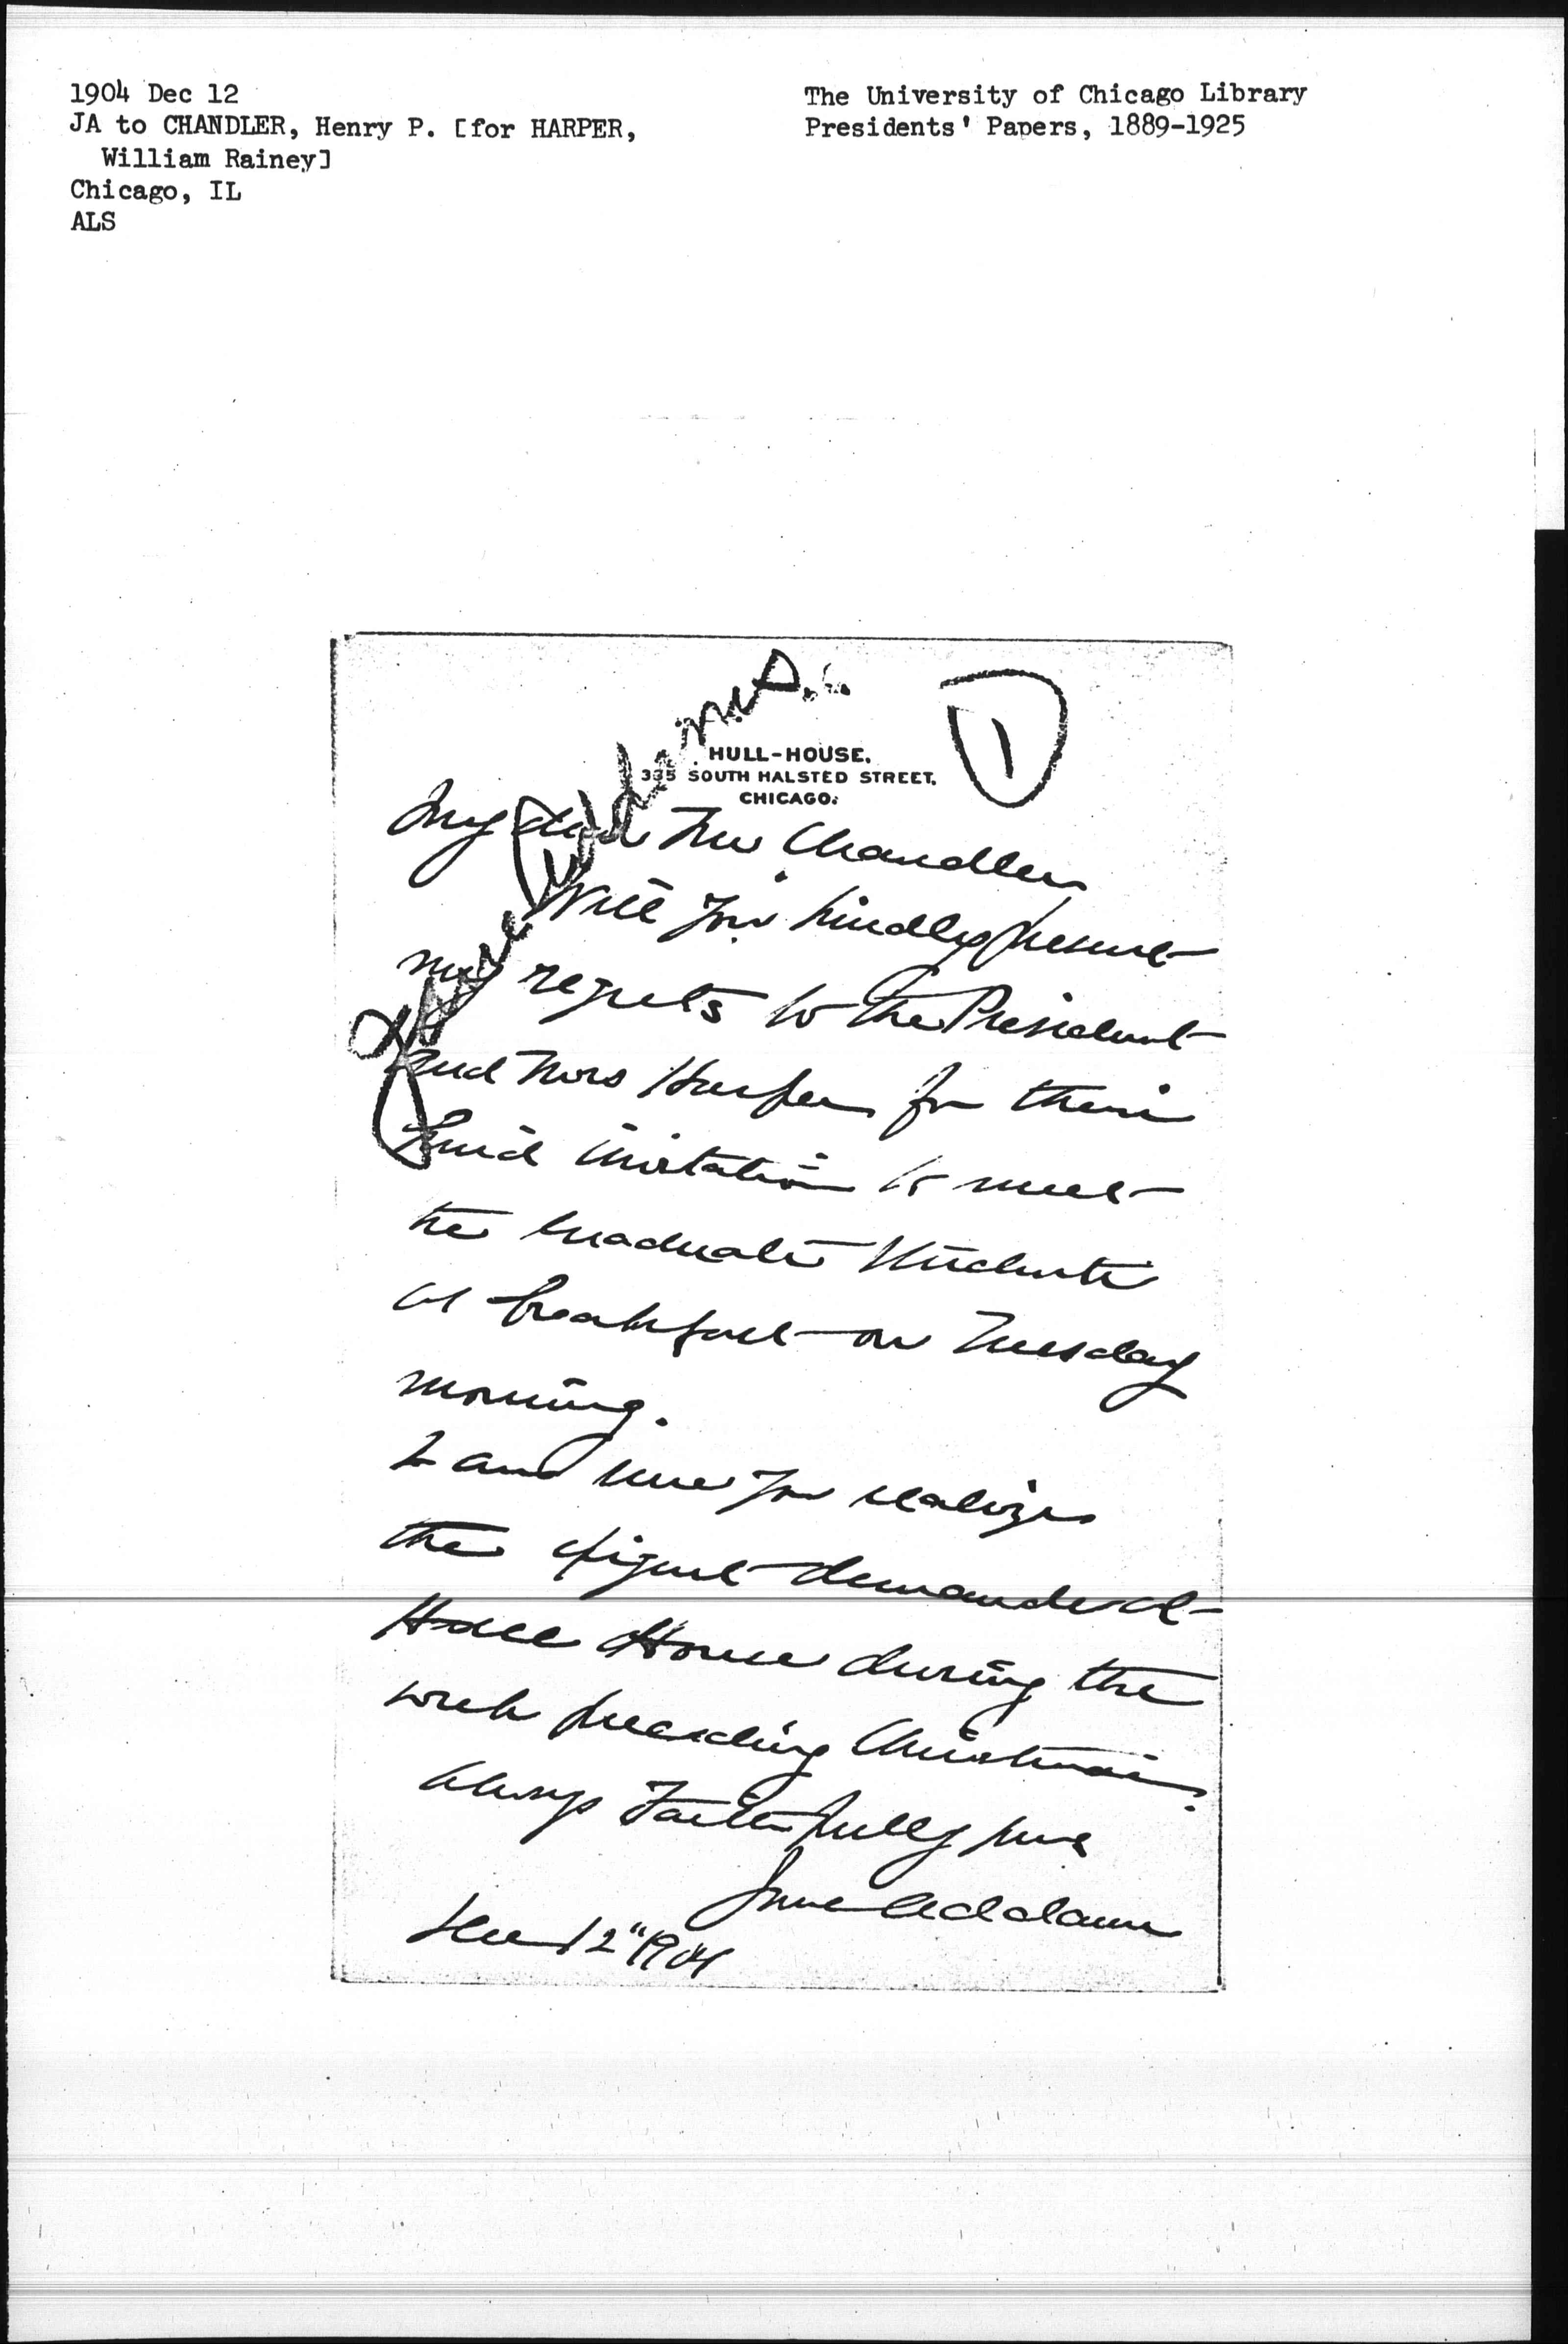 1904 Dec 12
JA to CHANDLER, Henry P. [for HARPER,
William Rainey]
Chicago, IL
ALS
The University of Chicago Library
Presidents' Papers, 1889-1925
1
HULL-HOUSE.
335 SOUTH HALSTED STREET.
CHICAGO.
My dear Mr Chandler
Will you kindly present
my regrets to the President
and Mrs Harper for their
kind invitation to meet
the Graduate Students
at breakfast on Tuesday
morning.
I am sure you realize
the exigent demands at
Hull House during the
week preceding Christmas.
Always faithfully yours
Jane Addams
Dec 12" 1904